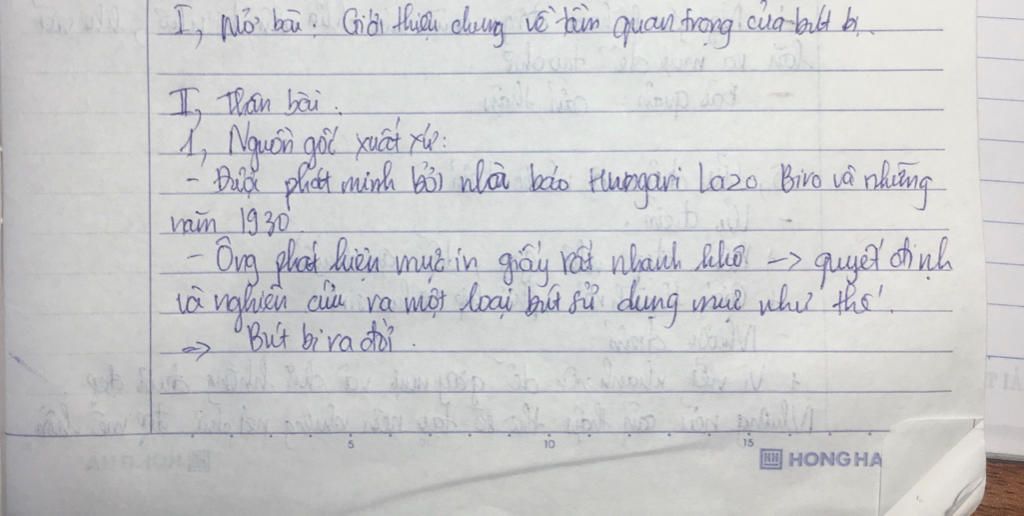 I, Mở bài: Giới thiệu chung về tầm quan trọng của bút bi.
II, Thân bài.
1, Nguồn gốc xuất xứ:
- Được phát minh bởi nhà báo Hungari Lazo Biro và những
năm 1930
- Ông phát hiện mực in giấy rất nhanh khô -> quyết định
và nghiên cứu ra một loại bút sử dụng mực như thế.
=> Bút bi ra đời.
5 10 15
HONG HA